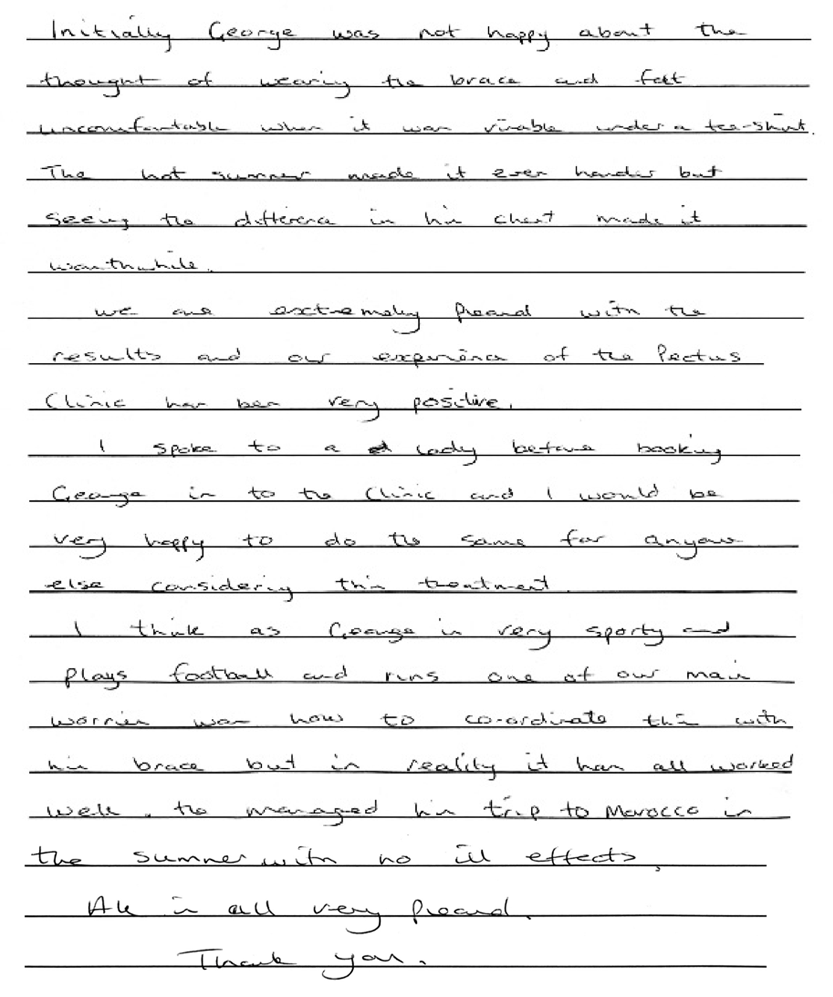 Initially George was not happy about the
thought of wearing the brace and felt
uncomfortable when it was visable under a tee-shirt.
The hot summer made it even harder but
seeing the difference in his chest made it
worthwhile.
we are extremely pleased with the
results and our experience of the Pectus
Clinic has been very positive.
I spoke to a lady before booking
George in to the Clinic and I would be
very happy to do the same for anyone
else considering this treatment.
I think as George is very sporty and
plays football and runs one of our main
worries was how to co-ordinate this with
his brace but in reality it has all worked
well. He managed his trip to Morocco in
the summer with no ill effects.
All in all very pleased.
Thank you.